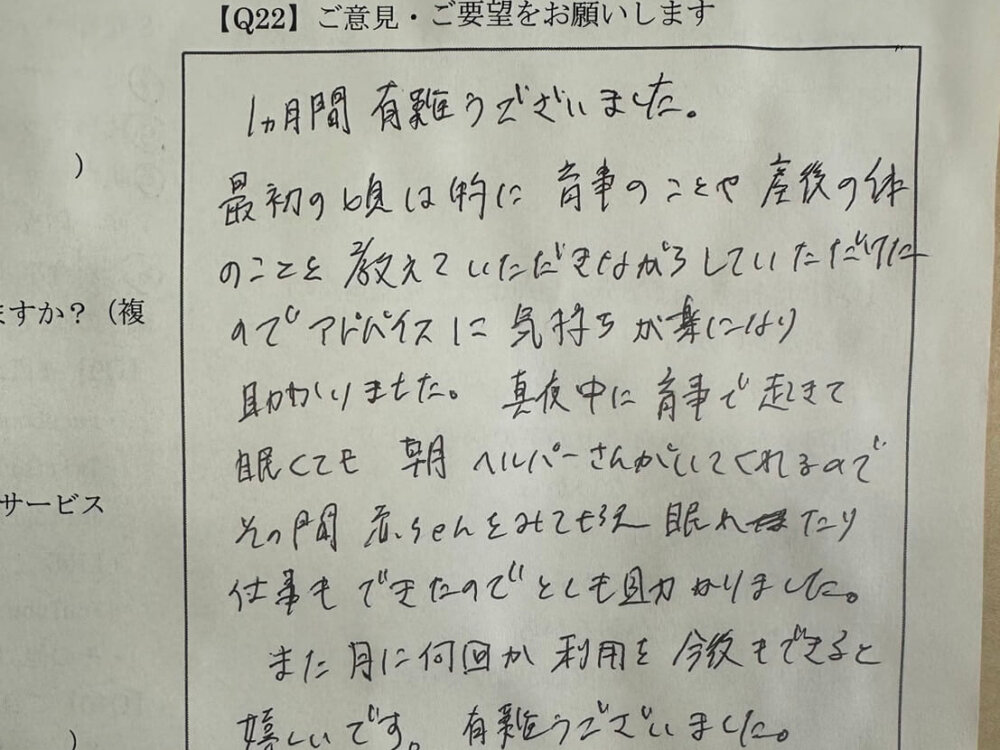 【Q22】ご意見・ご要望をお願いします
1ヵ月間 有難うございました。
)
最初の頃は特に 育事のことや 産後の体
のことを 教えていただきながらしていただけた
ますか？（複
のでアドバイスに 気持ちが楽になり
助かりました。 真夜中に 育事で起きて
眠くても 朝 ヘルパーさんがいてくれるので
サービス
その間 赤ちゃんをみてもらえ 眠れたり
仕事も できたのでとても助かりました。
また 月に何回か 利用を 今後もできると
嬉しいです。 有難うございました。
)